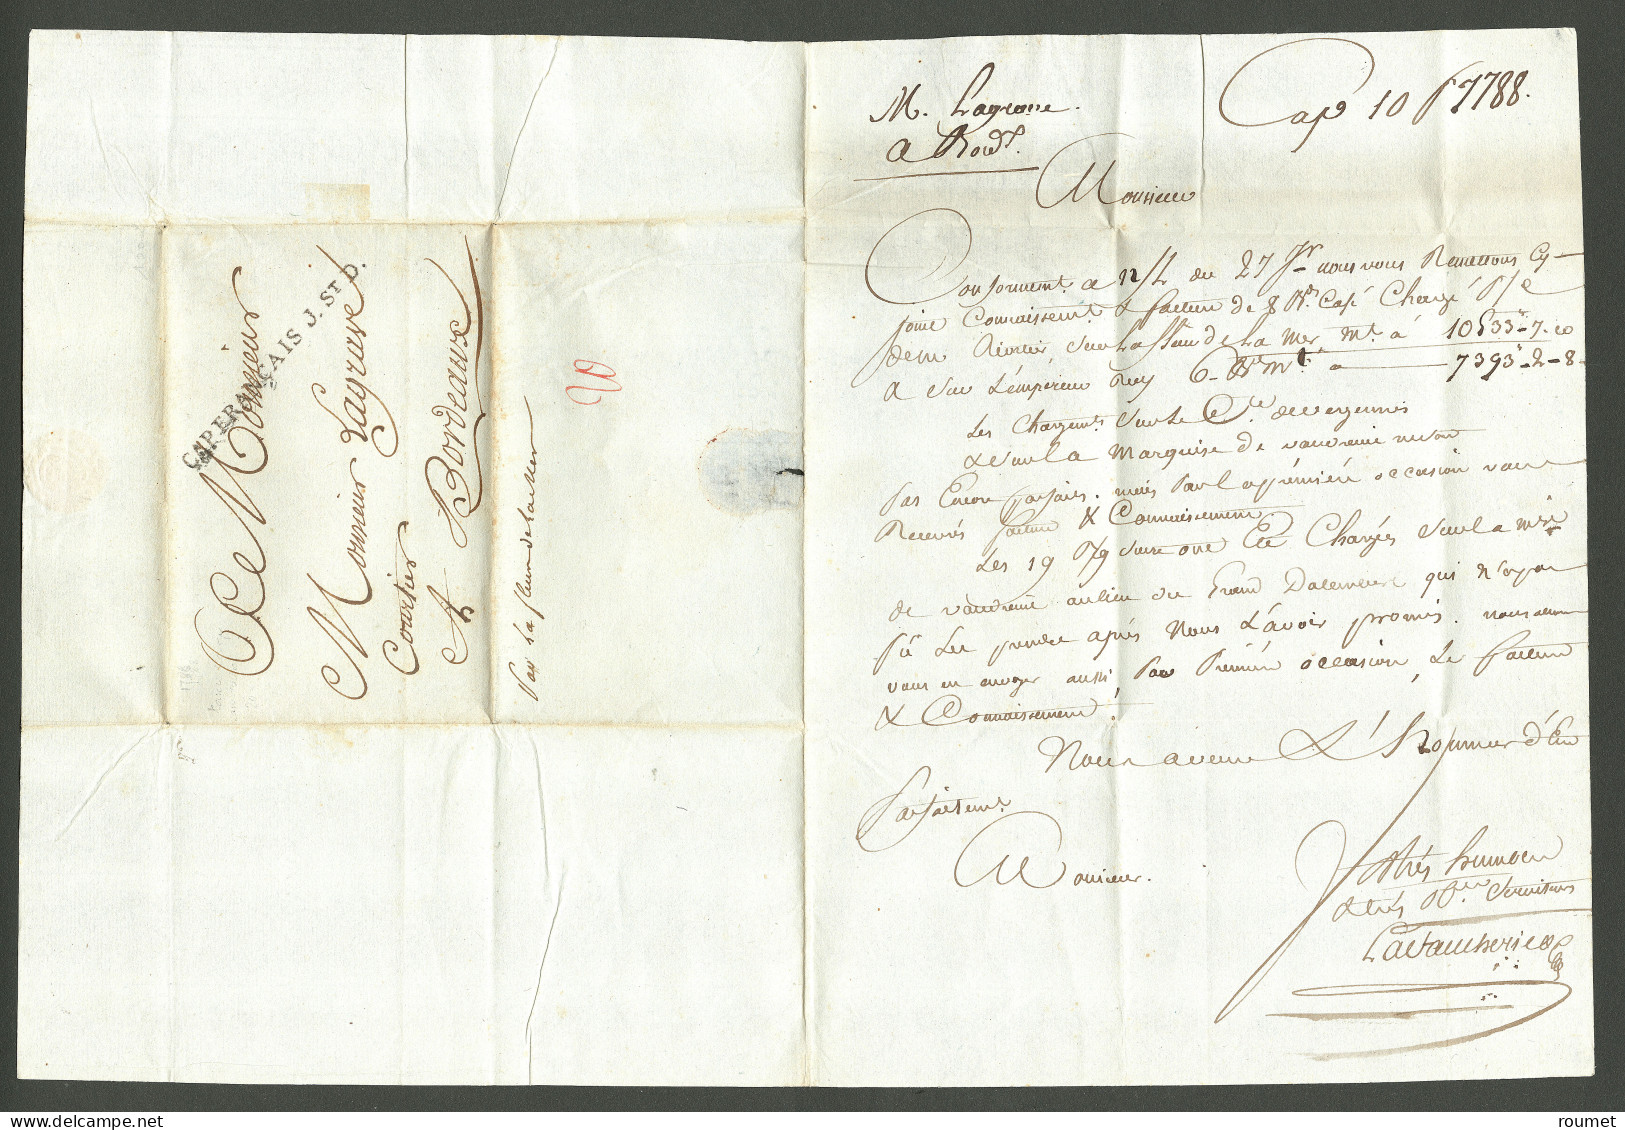 CAP FRANÇAIS J. ST D.
A Monsieur
Monsieur Lagrave
Courtier
A Bordeaux
par la fleur de
20
M. Lagrave.
a Bord.x
Cap 10 1788.
Monsieur
Conformemt. a n/L du 27 Jr. nous vous Remettons Cy
joint Connaissemt. & facture de 8 Bq. Café Chargé P/
sur de la Mer, Mt. à 10533"-7. 10
& sur L'empereur 6 Bq. Mt. a 7393"-2-8-
Les Chargemts. sur le Cte. de vergennes
& sur la Marquise de vaudreuil ne sont
pas Encore parfaits. mais par la première occasion vous
Recevrés facture & Connaissement.
Les 19 sucre ont Eté Chargés sur la Mse.
de vaudreuil au lieu du Grand qui n'a pas
pû Les prendre après Nous L'avoir promis. nous allons
vous en envoyer aussi, par Première occasion, La facture
& Connaissement.
Nous avons L'honneur d'Etre
parfaitemt.
Monsieur.
Vos très humbles
& très Obts. Serviteurs
roumet